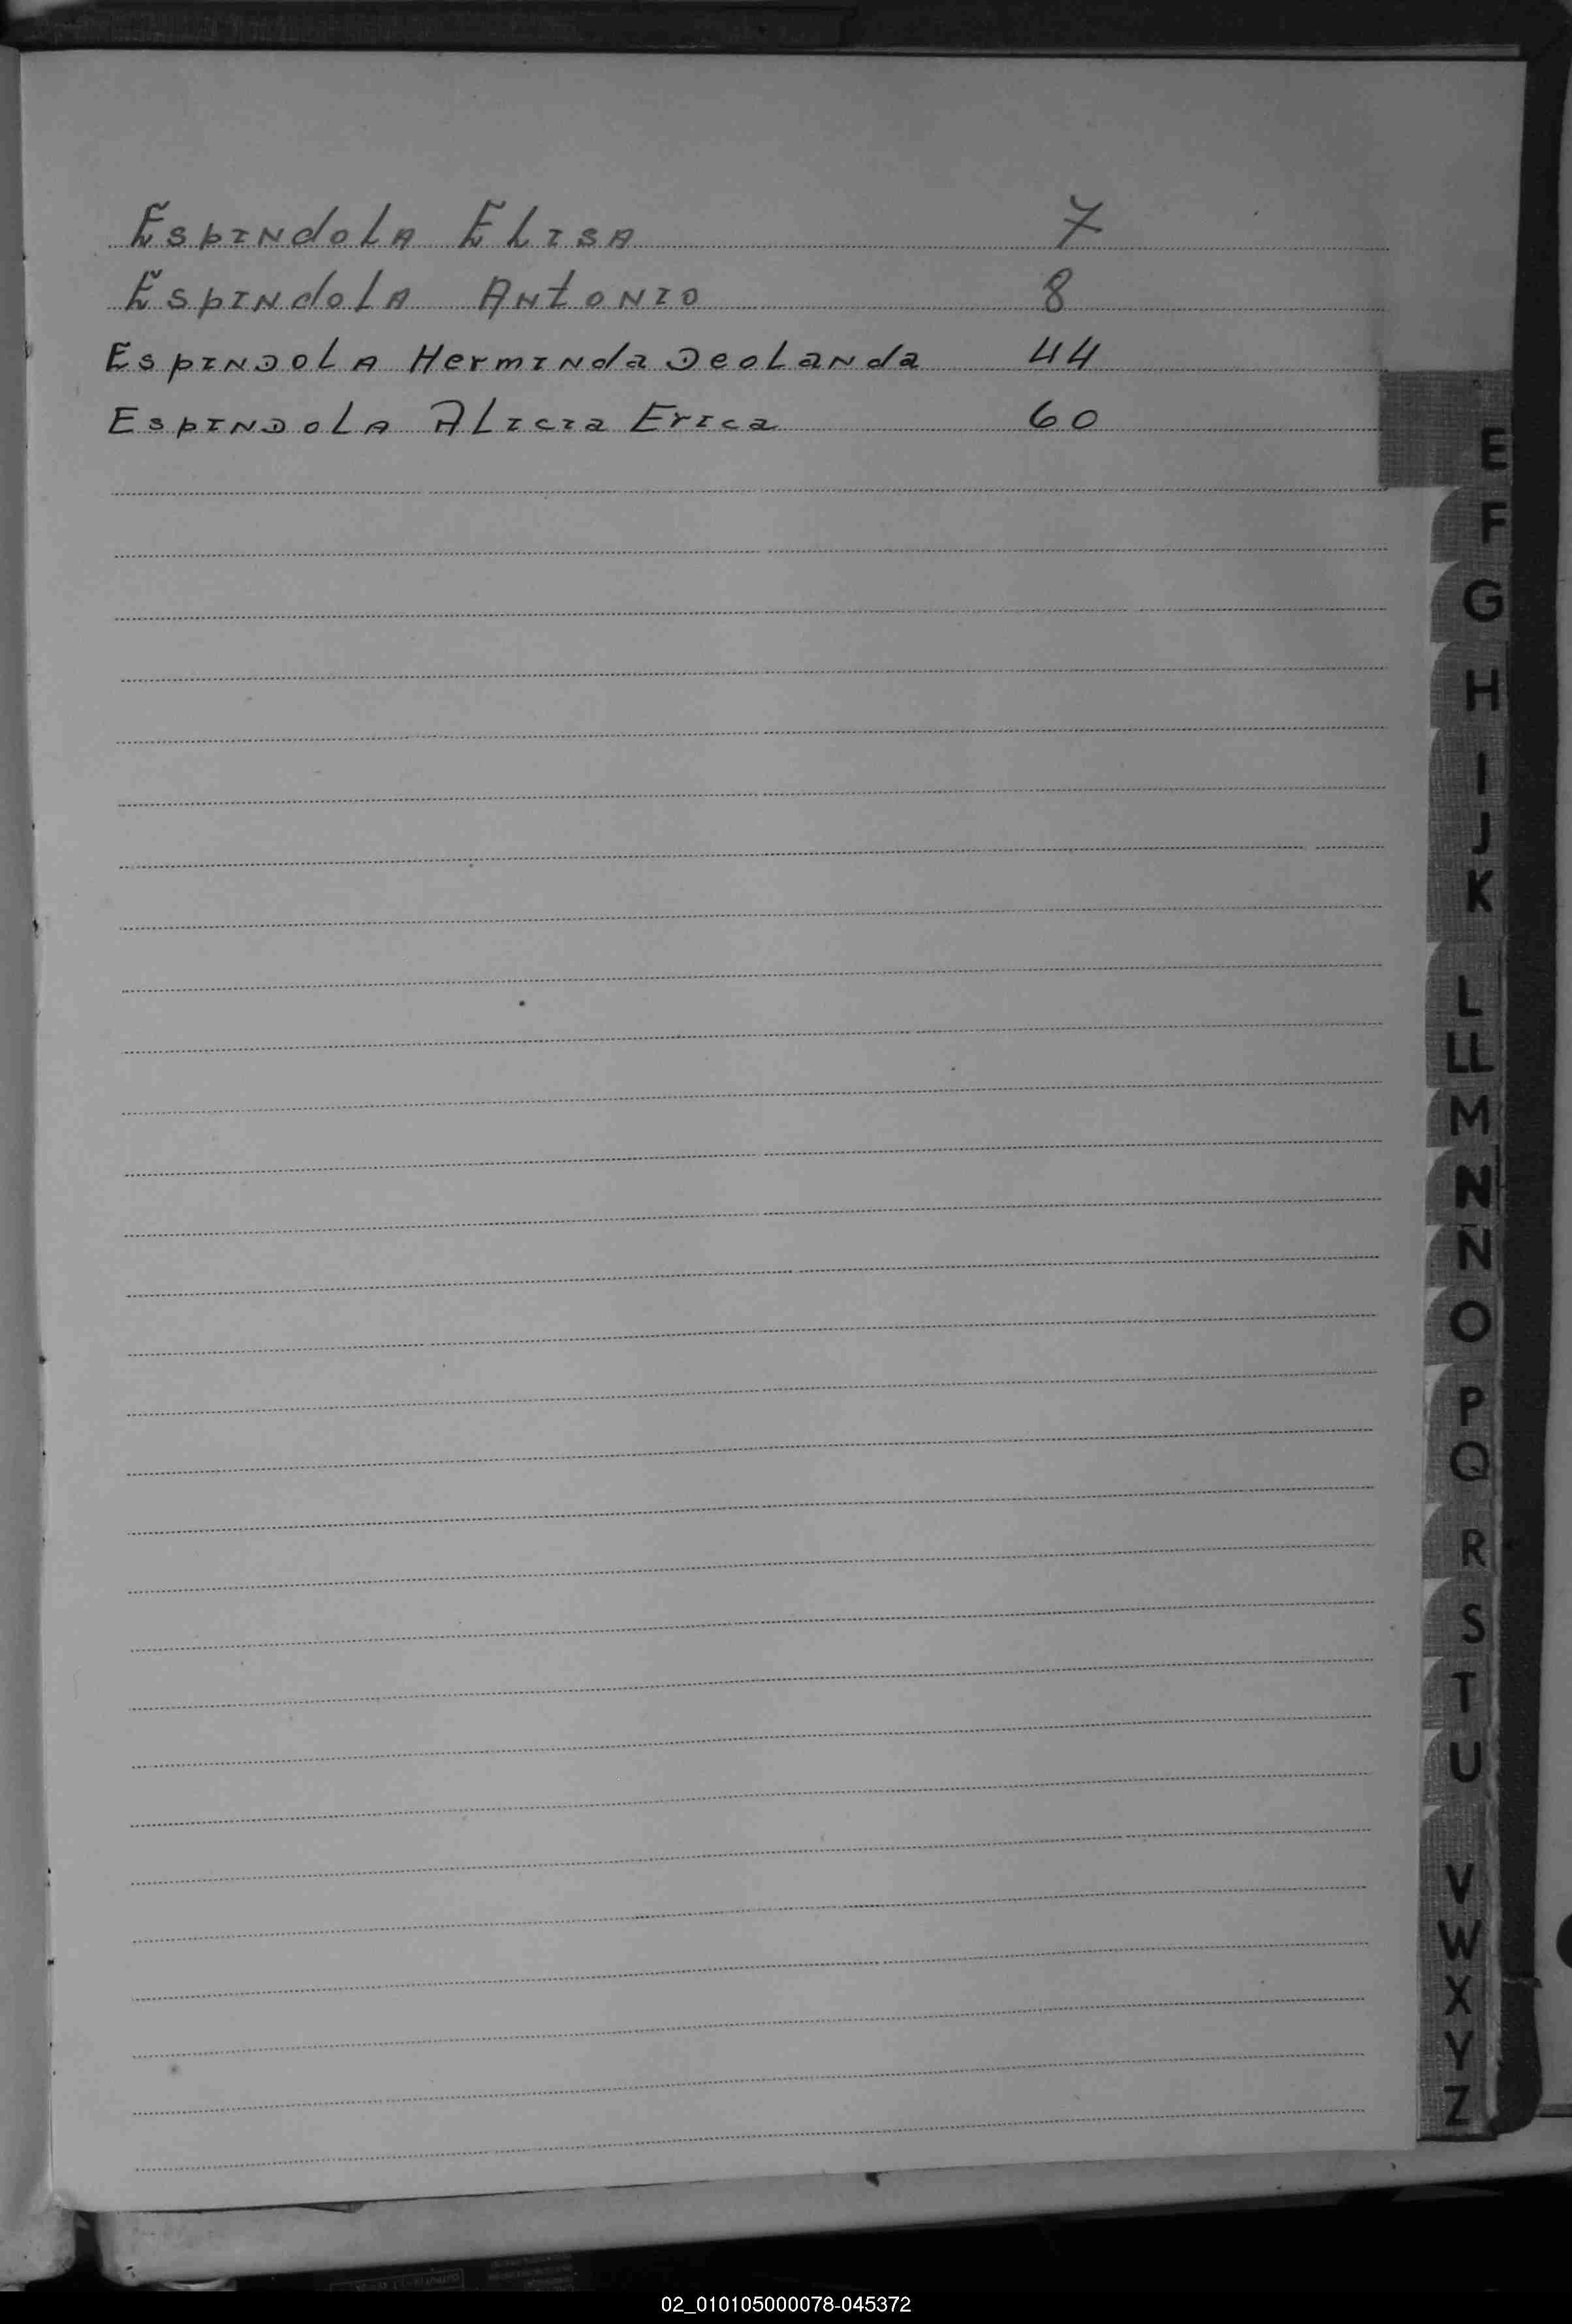 EspINdoLA ELISA 7
EspINdoLA ANtONIO 8
EspINDoLA HermINda DeoLaNda 44
EspINDoLA ALIcIa ErIca 60
E
F
G
H
I
J
K
L
LL
M
N
Ñ
O
P
Q
R
S
T
U
V
W
X
Y
Z
02_010105000078-045372